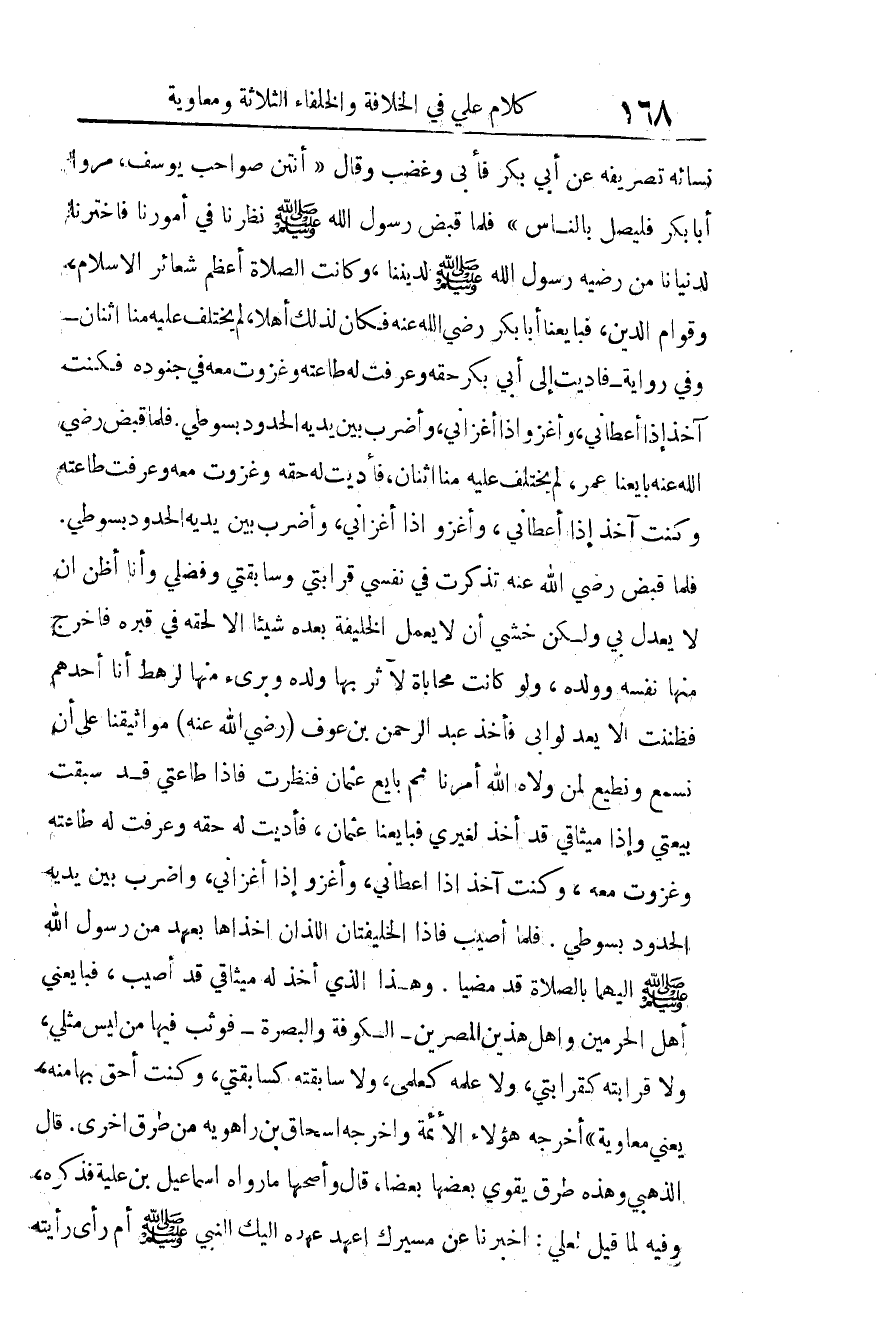 ١٦٨ كلام علي في الخلافة والخلفاء الثلاثة ومعاوية
نسائه تصريفه عن أبي بكر فأبى وغضب وقال « أنتن صواحب يوسف، مروا
أبابكر فليصل بالنــاس » فلما قبض رسول الله ﷺ نظرنا في أمورنا فاخترنا
لدنيانا من رضيه رسول الله ﷺ لديننا ،وكانت الصلاة أعظم شعائر الاسلام،
وقوام الدين، فبايعنا أبابكر رضي الله عنه فكان لذلك أهلا، لم يختلف عليه منا اثنان ــ
وفي رواية ــ فاديت إلى أبي بكر حقه وعرفت له طاعته وغزوت معه في جنوده فكنت
آخذ إذا أعطاني، وأغزو اذا أغزاني، وأضرب بين يديه الحدود بسوطي. فلما قبض رضي
الله عنه بايعنا عمر ، لم يختلف عليه منا اثنان، فأديت له حقه وغزوت معه وعرفت طاعته
وكنت آخذ إذا أعطاني ، وأغزو اذا أغزاني، وأضرب بين يديه الحدود بسوطي.
فلما قبض رضي الله عنه تذكرت في نفسي قرابتي وسابقتي وفضلي وأنا أظن ان
لا يعدل بي ولكن خشي أن لا يعمل الخليفة بعده شيئا الا لحقه في قبره فاخرج
منها نفسه وولده ، ولو كانت محاباة لآثر بها ولده وبرىء منها لرهط أنا أحدهم
فظننت الا يعد لوابى فأخذ عبد الرحمن بن عوف (رضي الله عنه) مواثيقنا على أن
نسمع ونطيع لمن ولاه الله أمرنا ثم بايع عثمان فنظرت فاذا طاعتي قــد سبقت
بيعتي وإذا ميثاقي قد أخذ لغيري فبايعنا عثمان ، فأديت له حقه وعرفت له طاعته
وغزوت معه ، وكنت آخذ اذا اعطاني، وأغزو إذا أغزاني، واضرب بين يديه
الحدود بسوطي . فلما أصيب فاذا الخليفتان اللذان اخذاها بعهد من رسول الله
ﷺ اليهما بالصلاة قد مضيا . وهــذا الذي أخذ له ميثاقي قد أصيب ، فبايعني
أهل الحرمين واهل هذين المصرين ــ الكوفة والبصرة ــ فوثب فيها من ليس مثلي،
ولا قرابته كقرابتي، ولا علمه كعلمى، ولا سابقته كسابقتي، وكنت أحق بها منه،
يعني معاوية» أخرجه هؤلاء الأئمة واخرجه اسحاق بن راهويه من طرق اخرى. قال
الذهبي وهذه طرق يقوي بعضها بعضا، قال وأصحها مارواه اسماعيل بن علية فذكره،
وفيه لما قيل لعلي : اخبرنا عن مسيرك اعهد عهده اليك النبي ﷺ أم رأى رأيته